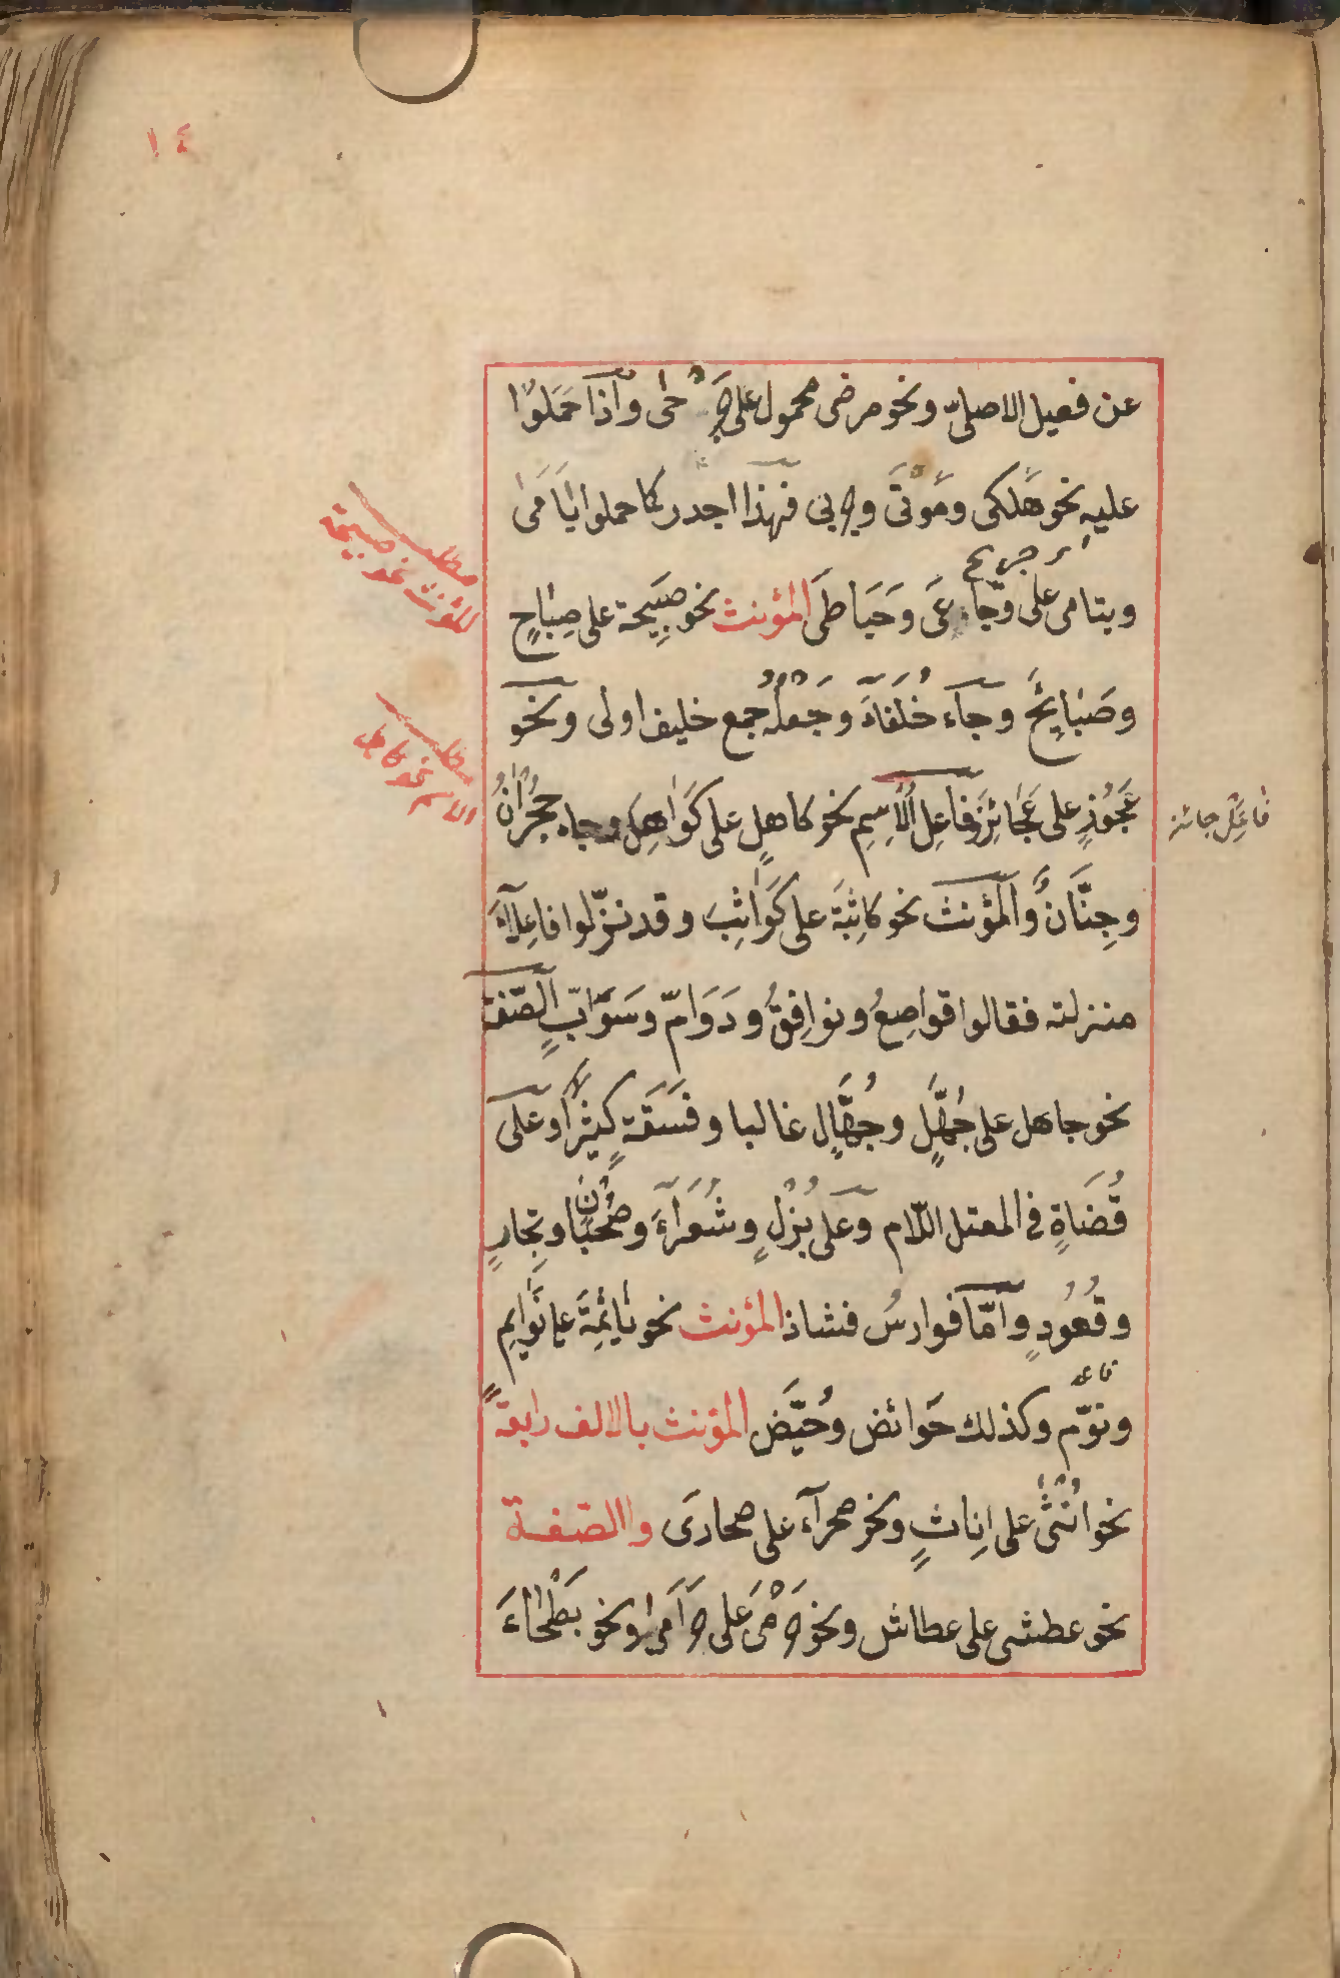 ١٤
عن فعيل الاصلىّ ونحو مرضى محمول على جرحى واذا حَمَلوُا
عليهِ نحو هَلكى ومَوتَى وجربى فهذا اجدر كما حملوا ايَامَى
ويتامى على وَجَاعَى وَحَبَاطَى المؤنث نحو صَبِيحة على صِبَاحٍ
وصَبَايِحَ وجاء خُلَفَاءَ وجَعْلُهُ جمع خليف اولى ونحو
عَجُوُزٍ على عَجَائِزَ فَاعِل الاسِمِ نحو كاهلٍ على كَوَاهِلَ وجاء حجُرَانُ
وجِنَّانُ والمؤنث نحو كاثِبَة على كَوَاثِبَ وقد نزّلوا فاعِلاءَ
منزلته فقالوا قواصِعُ ونوافِقُ ودَوَامّ وسَوَابّ الصّفة
نحو جاهل على جُهَّلٍ وجُهَّالٍ غالبا وفَسَقَةٍ كثيرًا وعلى
قُضَاةٍ فى المعتل اللّام وعلى بُزْلٍ وشُعَرَاءَ وصُحْبَانٍ وتِجارٍ
وقُعُودٍ وامّا فوارسُ فشاذ المؤنث نحو نائِمَةَ على نَوَايِم
ونوّم وكذلك حَوائض وحُيَّض المؤنث بالالف رابعةً
نحو انُثْى على اِناثٍ ونحو صحراء على صحارَى والصفة
نحو عطشى على عطاش ونحو حَرْمَى على حَرَامَى ونحو بَطْحَاءَ
مطلب
المؤنث نحو صبيحة
مطلب
الاسم نحو كاهل
فاعل جائز